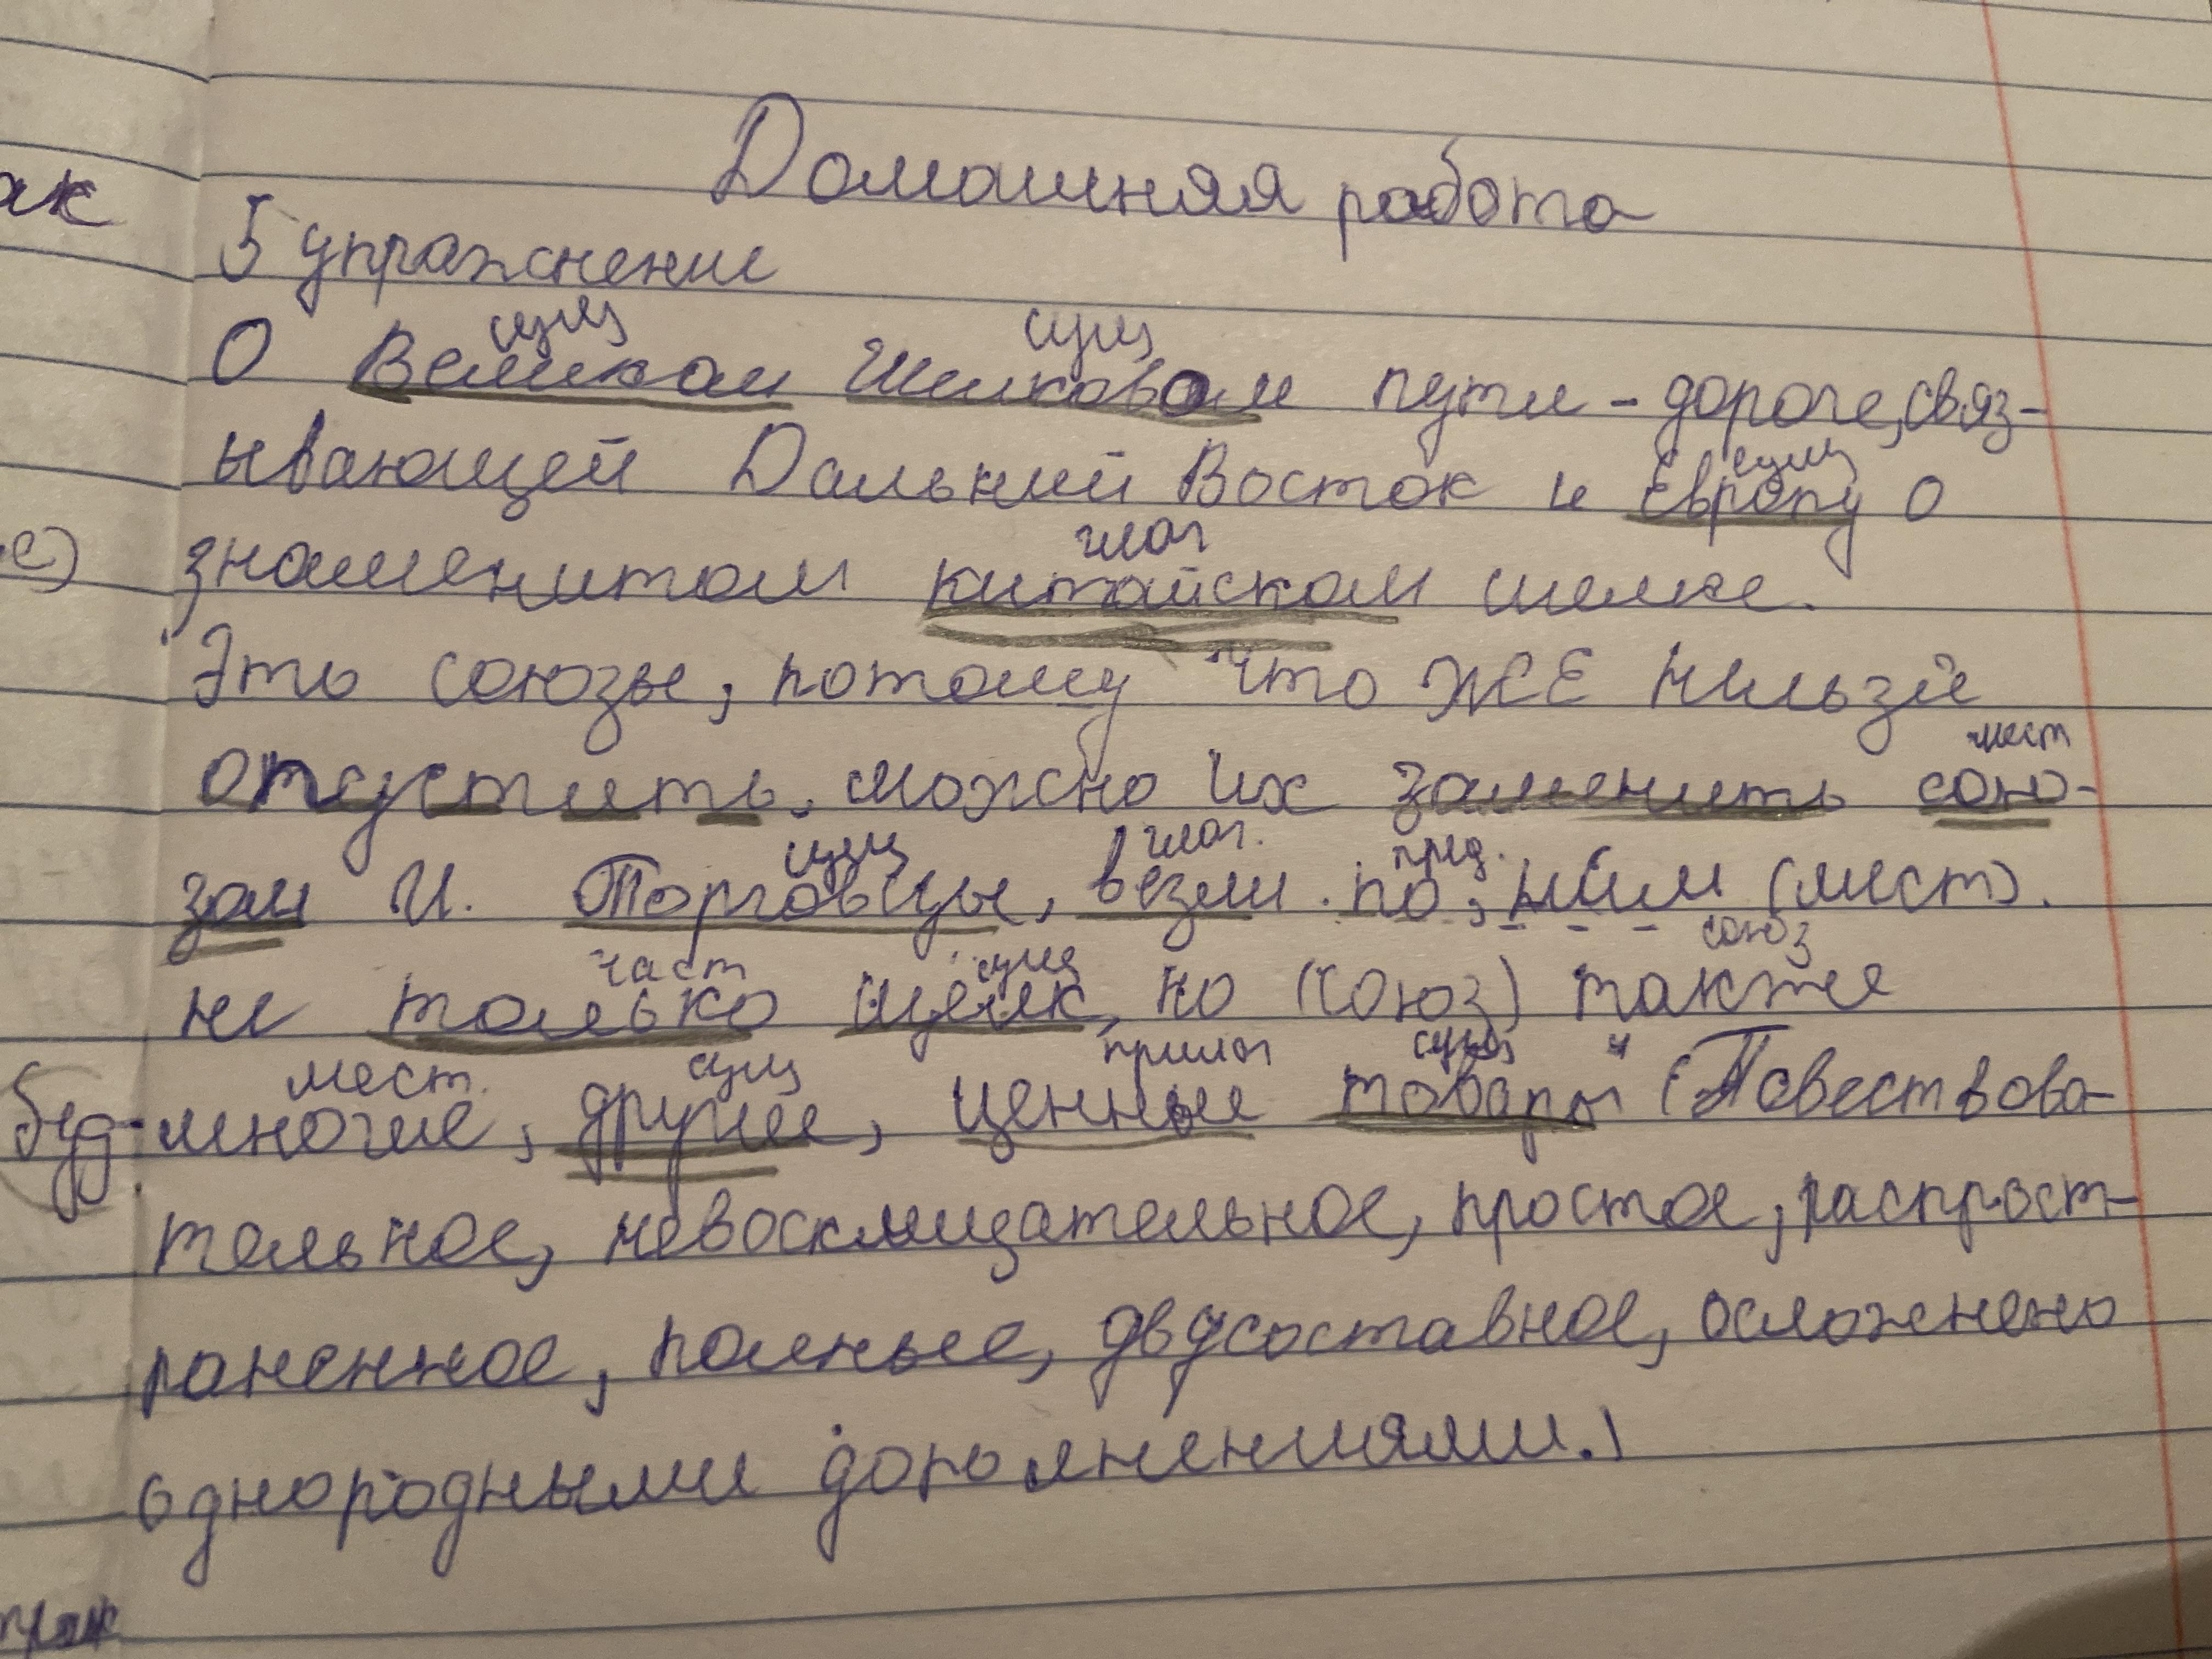 Домашняя работа
5 упражнение
сущ сущ
О Великом Шелковом пути - дороге, связ-
ывающей Дальний Восток и Европу О
сущ
глаг
знаменитом китайском шелке.
Это союзы, потому что ЖЕ нельзя
опустить, можно их заменить сою-
мест
зом И. Торговцы, везли по, ним (мест).
сущ глаг. пред.
не только шёлк, но (союз) также
част сущ союз
многие, другие, ценные товары" (Повествова-
мест. сущ прилаг сущ
тельное, невосклицательное, простое, распрост-
раненное, полные, двусоставное, осложнено
однородными дополнениями.)
ак
е)
буд